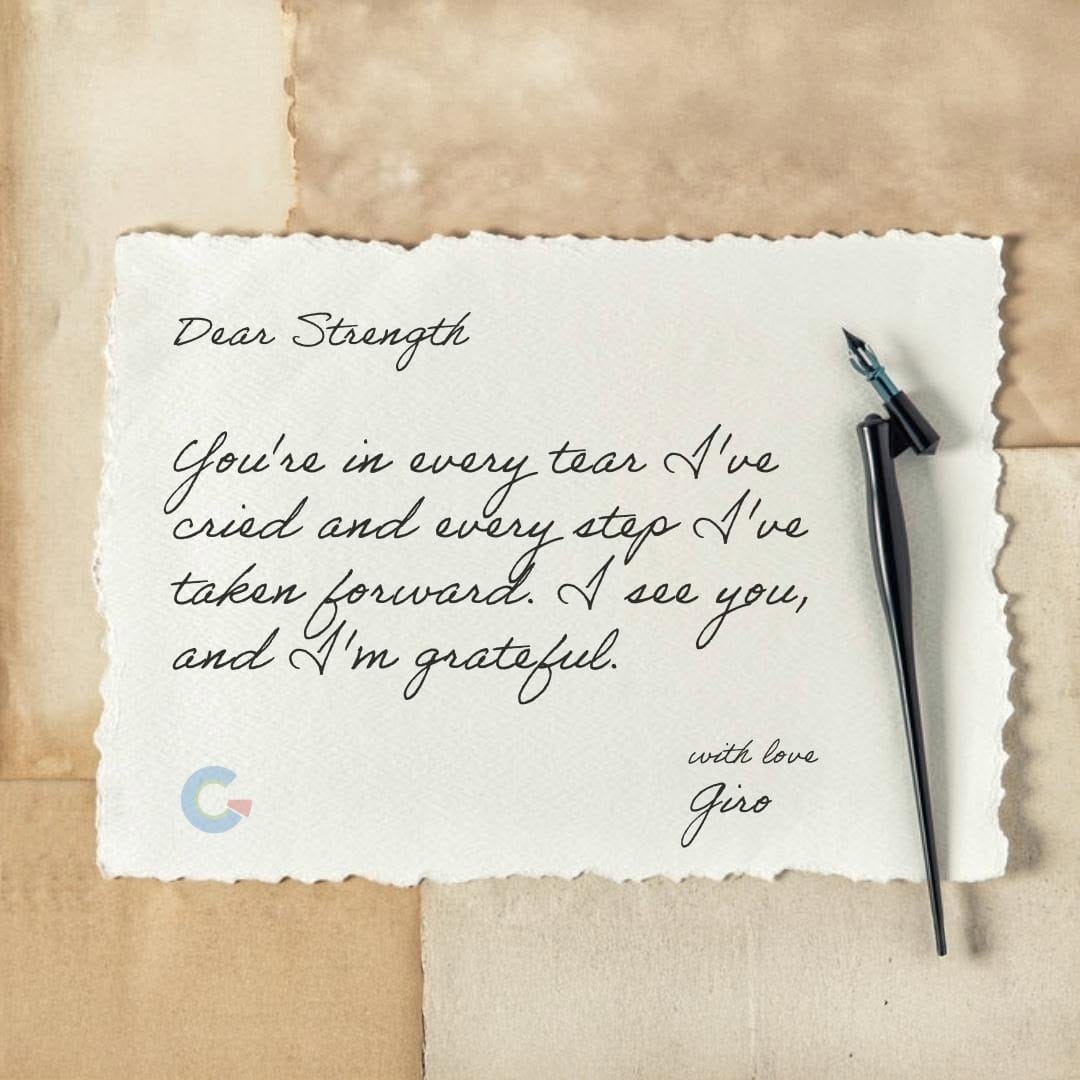 Dear Strength
You're in every tear I've
cried and every step I've
taken forward. I see you,
and I'm grateful.
with love
Giro